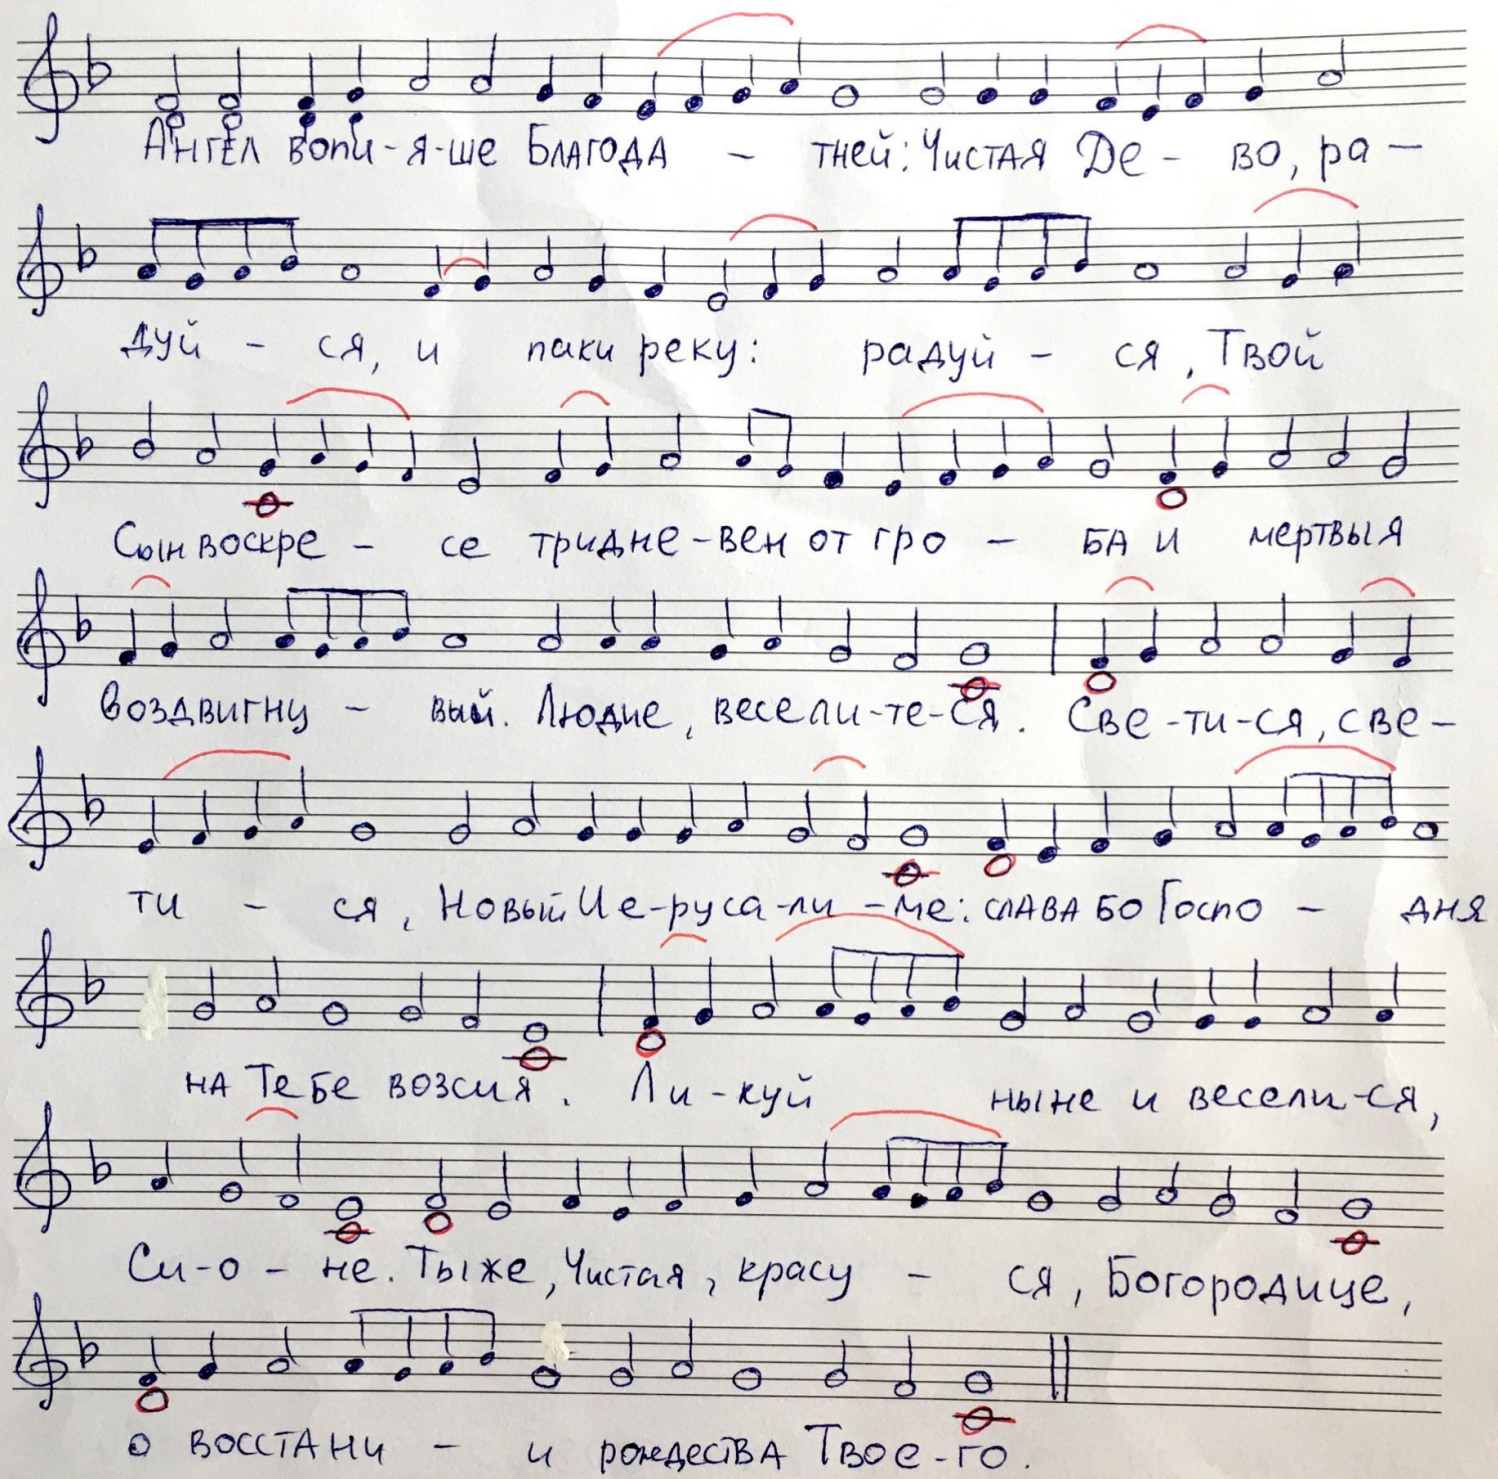 Ангел вопи-я-ше Благода - тней: Чистая Де - во, ра -
дуй - ся, и паки реку: радуй - ся, Твой
Сын воскре - се тридне-вен от гро - ба и мертвыя
воздвигну - вый. Людие, весели-те-ся. Све-ти-ся, све-
ти - ся, Новый Ие-руса-ли-ме: слава бо Госпо - дня
на Тебе возсия. Ли-куй ныне и весели-ся,
Си-о-не. Ты же, Чистая, красу - ся, Богородице,
о восстани - и рождества Твое-го.